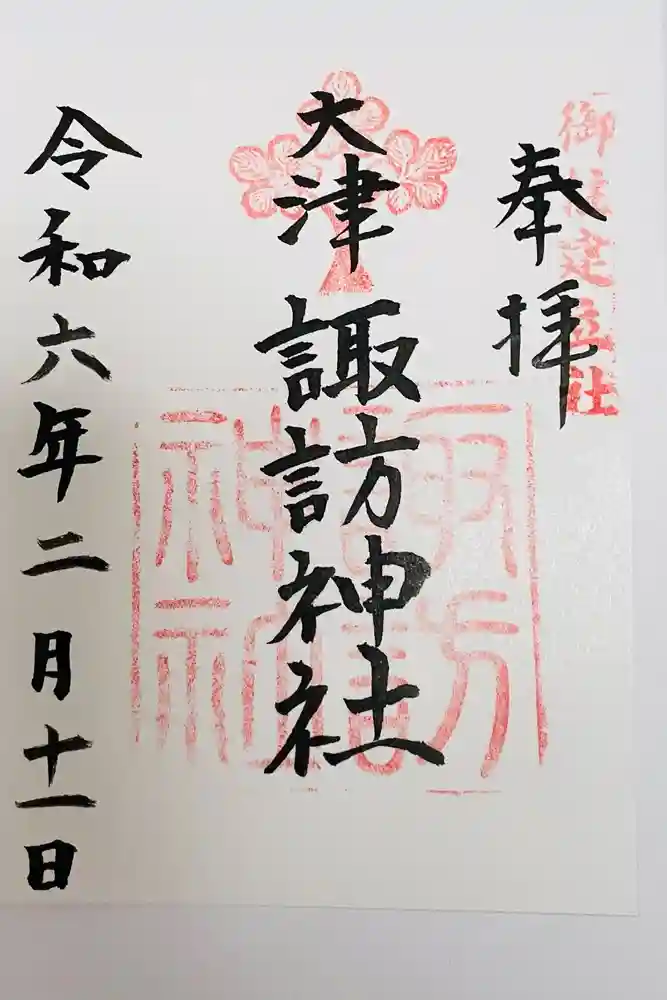 御柱建立社
奉拝
大津
諏訪神社
諏訪
神社
令和六年二月十一日